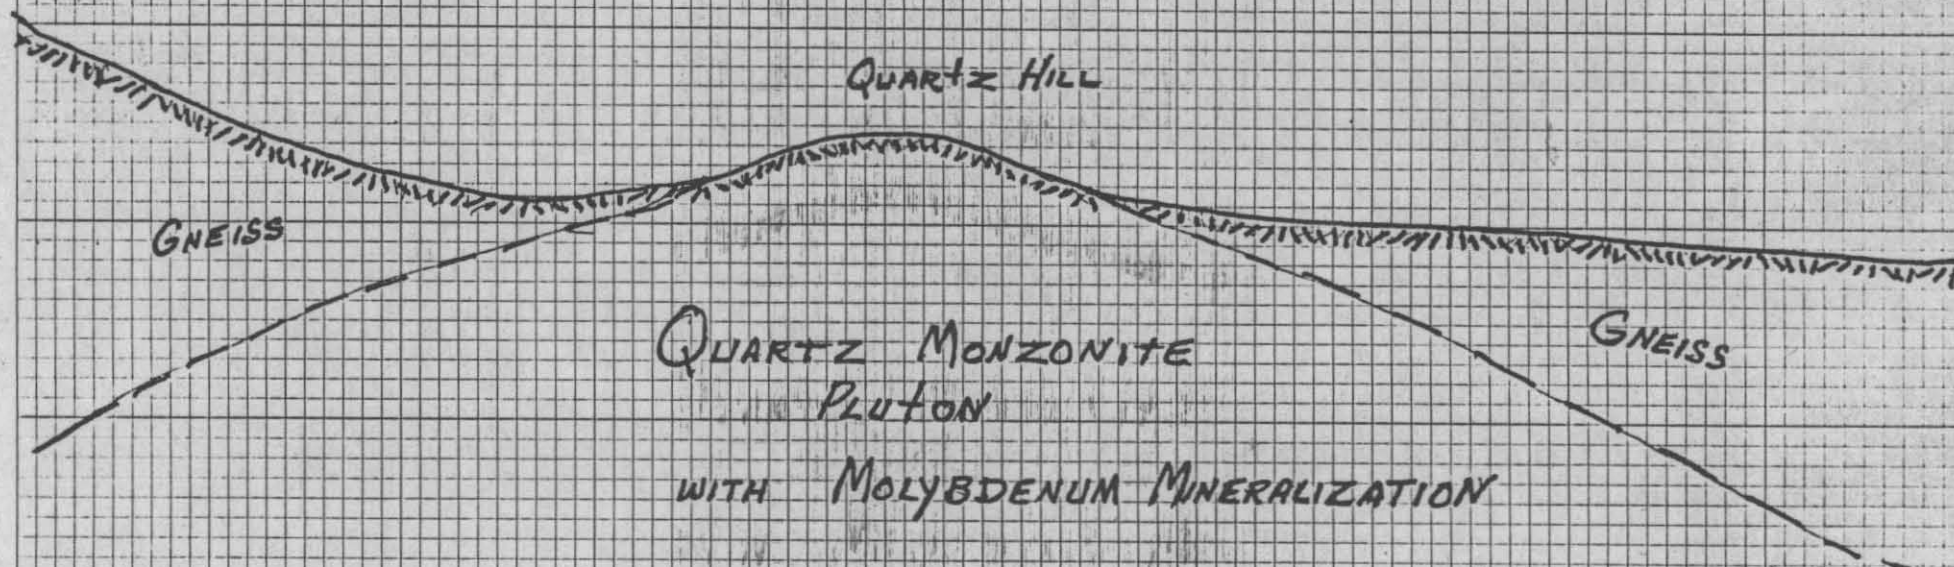 QUARTZ HILL
GNEISS
QUARTZ MONZONITE
PLUTON
GNEISS
WITH MOLYBDENUM MINERALIZATION